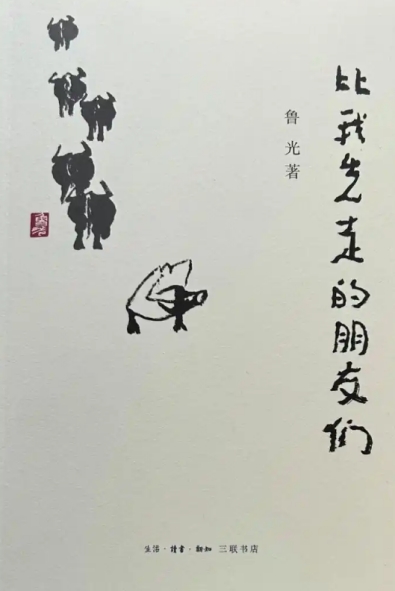 比我先走的朋友们
鲁光著
生活·读书·新知 三联书店